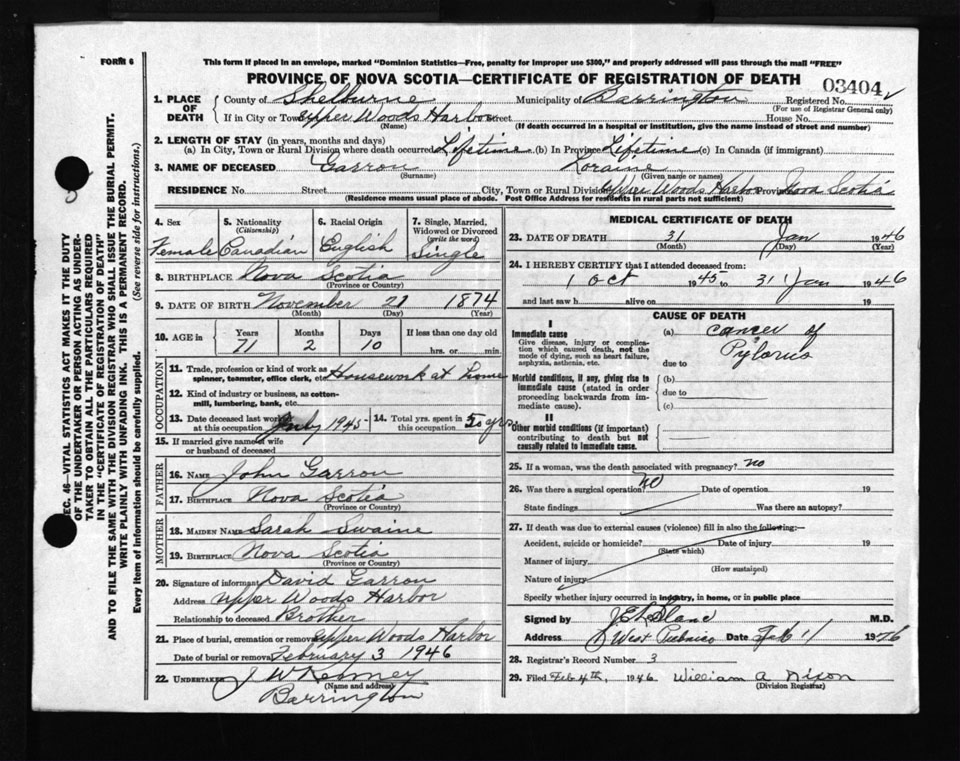 FORM 6
This form if placed in an envelope, marked "Dominion Statistics—Free, penalty for improper use $300," and properly addressed will pass through the mail "FREE"
PROVINCE OF NOVA SCOTIA—CERTIFICATE OF REGISTRATION OF DEATH
03404
1. PLACE OF DEATH County of Shelburne Municipality of Barrington Registered No.
(For use of Registrar General only)
If in City or Town Upper Woods Harbor Street House No.
(Name) (If death occurred in a hospital or institution, give the name instead of street and number)
2. LENGTH OF STAY (in years, months and days)
(a) In City, Town or Rural Division where death occurred Lifetime (b) In Province Lifetime (c) In Canada (if immigrant)
3. NAME OF DECEASED Garron Loraine
(Surname) (Given name or names)
RESIDENCE No. Street City, Town or Rural Division Upper Woods Harbor Province Nova Scotia
(Residence means usual place of abode. Post Office Address for residents in rural parts not sufficient)
4. Sex
Female
5. Nationality
(Citizenship)
Canadian
6. Racial Origin
English
7. Single, Married,
Widowed or Divorced
(write the word)
Single
8. BIRTHPLACE Nova Scotia
(Province or Country)
9. DATE OF BIRTH November 21 1874
(Month) (Day) (Year)
10. AGE in Years Months Days If less than one day old
71 2 10 hrs. or min.
OCCUPATION
11. Trade, profession or kind of work as
spinner, teamster, office clerk, etc. Housework at home
12. Kind of industry or business, as cotton-
mill, lumbering, bank, etc.
13. Date deceased last worked
at this occupation July 1945
14. Total yrs. spent in
this occupation 50 yrs.
15. If married give name of wife
or husband of deceased
FATHER
16. NAME John Garron
17. BIRTHPLACE Nova Scotia
(Province or Country)
MOTHER
18. MAIDEN NAME Sarah Swaine
19. BIRTHPLACE Nova Scotia
(Province or Country)
20. Signature of informant David Garron
Address Upper Woods Harbor
Relationship to deceased Brother
21. Place of burial, cremation or removal Upper Woods Harbor
Date of burial or removal February 3 1946
22. UNDERTAKER J W Kenney
(Name and address)
Barrington
MEDICAL CERTIFICATE OF DEATH
23. DATE OF DEATH 31 Jan 1946
(Month) (Day) (Year)
24. I HEREBY CERTIFY that I attended deceased from:
1 Oct 1945 to 31 Jan 1946
and last saw h alive on 19
CAUSE OF DEATH
I
Immediate cause
Give disease, injury or complica-
tion which caused death, not the
mode of dying, such as heart failure,
asphyxia, asthenia, etc.
(a) cancer of
Pylorus
due to
Morbid conditions, if any, giving rise to
immediate cause (stated in order
proceeding backwards from im-
mediate cause).
(b)
due to
(c)
II
Other morbid conditions (if important)
contributing to death but not
causally related to immediate cause.
25. If a woman, was the death associated with pregnancy? no
26. Was there a surgical operation? no Date of operation 19
State findings Was there an autopsy?
27. If death was due to external causes (violence) fill in also the following:—
Accident, suicide or homicide? Date of injury 19
(State which)
Manner of injury
(How sustained)
Nature of injury
Specify whether injury occurred in industry, in home, or in public place
Signed by J E LeBlanc M.D.
Address West Pubnico Date Feb 11 1946
28. Registrar's Record Number 3
29. Filed Feb 4th, 1946 William A Nixon
(Division Registrar)
SEC. 46—VITAL STATISTICS ACT MAKES IT THE DUTY
OF THE UNDERTAKER OR PERSON ACTING AS UNDER-
TAKER TO OBTAIN ALL THE PARTICULARS REQUIRED
IN THE "CERTIFICATE OF REGISTRATION OF DEATH"
AND TO FILE THE SAME WITH THE DIVISION REGISTRAR WHO SHALL ISSUE THE BURIAL PERMIT.
WRITE PLAINLY WITH UNFADING INK. THIS IS A PERMANENT RECORD.
Every item of Information should be carefully supplied. (See reverse side for instructions.)